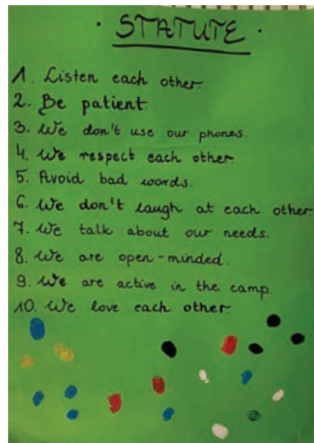 · STATUTE ·
1. Listen each other.
2. Be patient
3. We don't use our phones.
4. We respect each other
5. Avoid bad words.
6. We don't laugh at each other
7. We talk about our needs.
8. We are open-minded.
9. We are active in the camp.
10. We love each other.